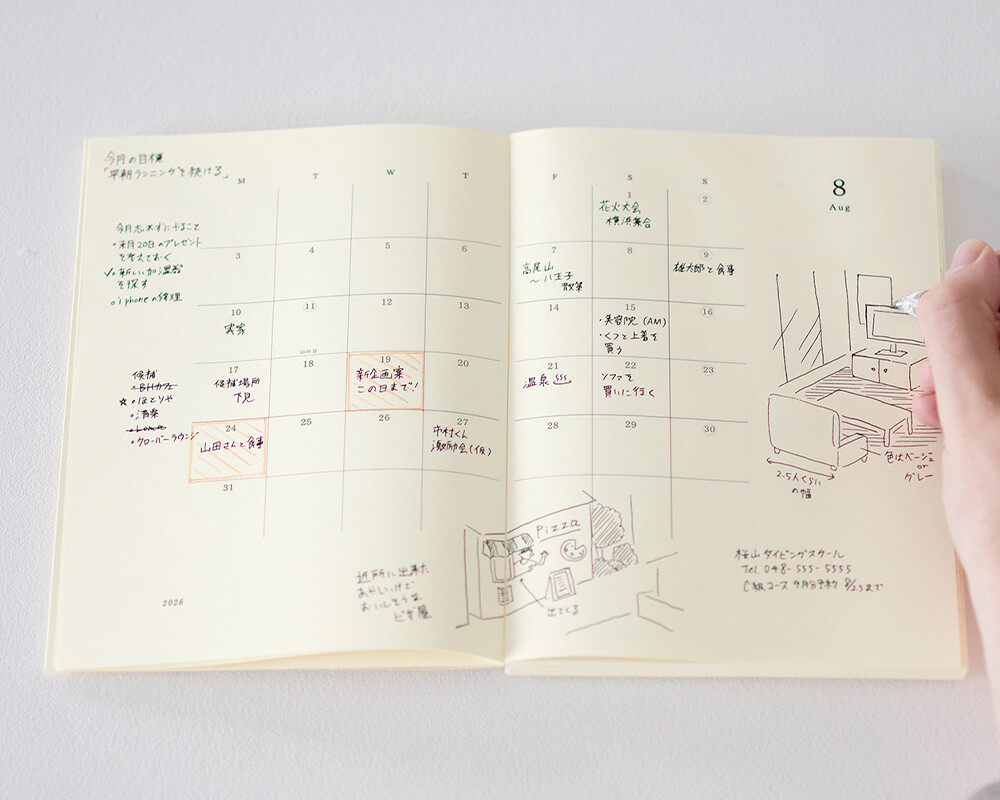 今月の目標
「早朝ランニングを続ける」
M T W T F S S
8
Aug
今月忘れずにやること
・来月20日のプレゼント
を考えておく
✓・新しい加湿器
を探す
・iphoneの修理
1
花火大会
横浜集合
2
3
4
5
6
7
高尾山
〜八王子
散策
8
9
雄太郎と食事
10
実家
11
山の日
12
13
14
15
・美容院(AM)
・くつと上着を
買う
16
候補
・BHカフェ
☆・ほとりや
・清楽
・Lonca
・クローバーラウンジ
17
候補場所
下見
18
19
新企画案
この日まで!
20
21
温泉
22
ソファを
買いに行く
23
24
山田さんと食事
25
26
27
中村くん
激励会(仮)
28
29
30
31
色はベージュ
or
グレー
2.5人くらい
の幅
Pizza
出てくる
近所に出来た
あやしいけど
おいしそうな
ピザ屋
桜山ダイビングスクール
Tel. 048-555-5555
C級コース 9月分予約 8/23まで
2026